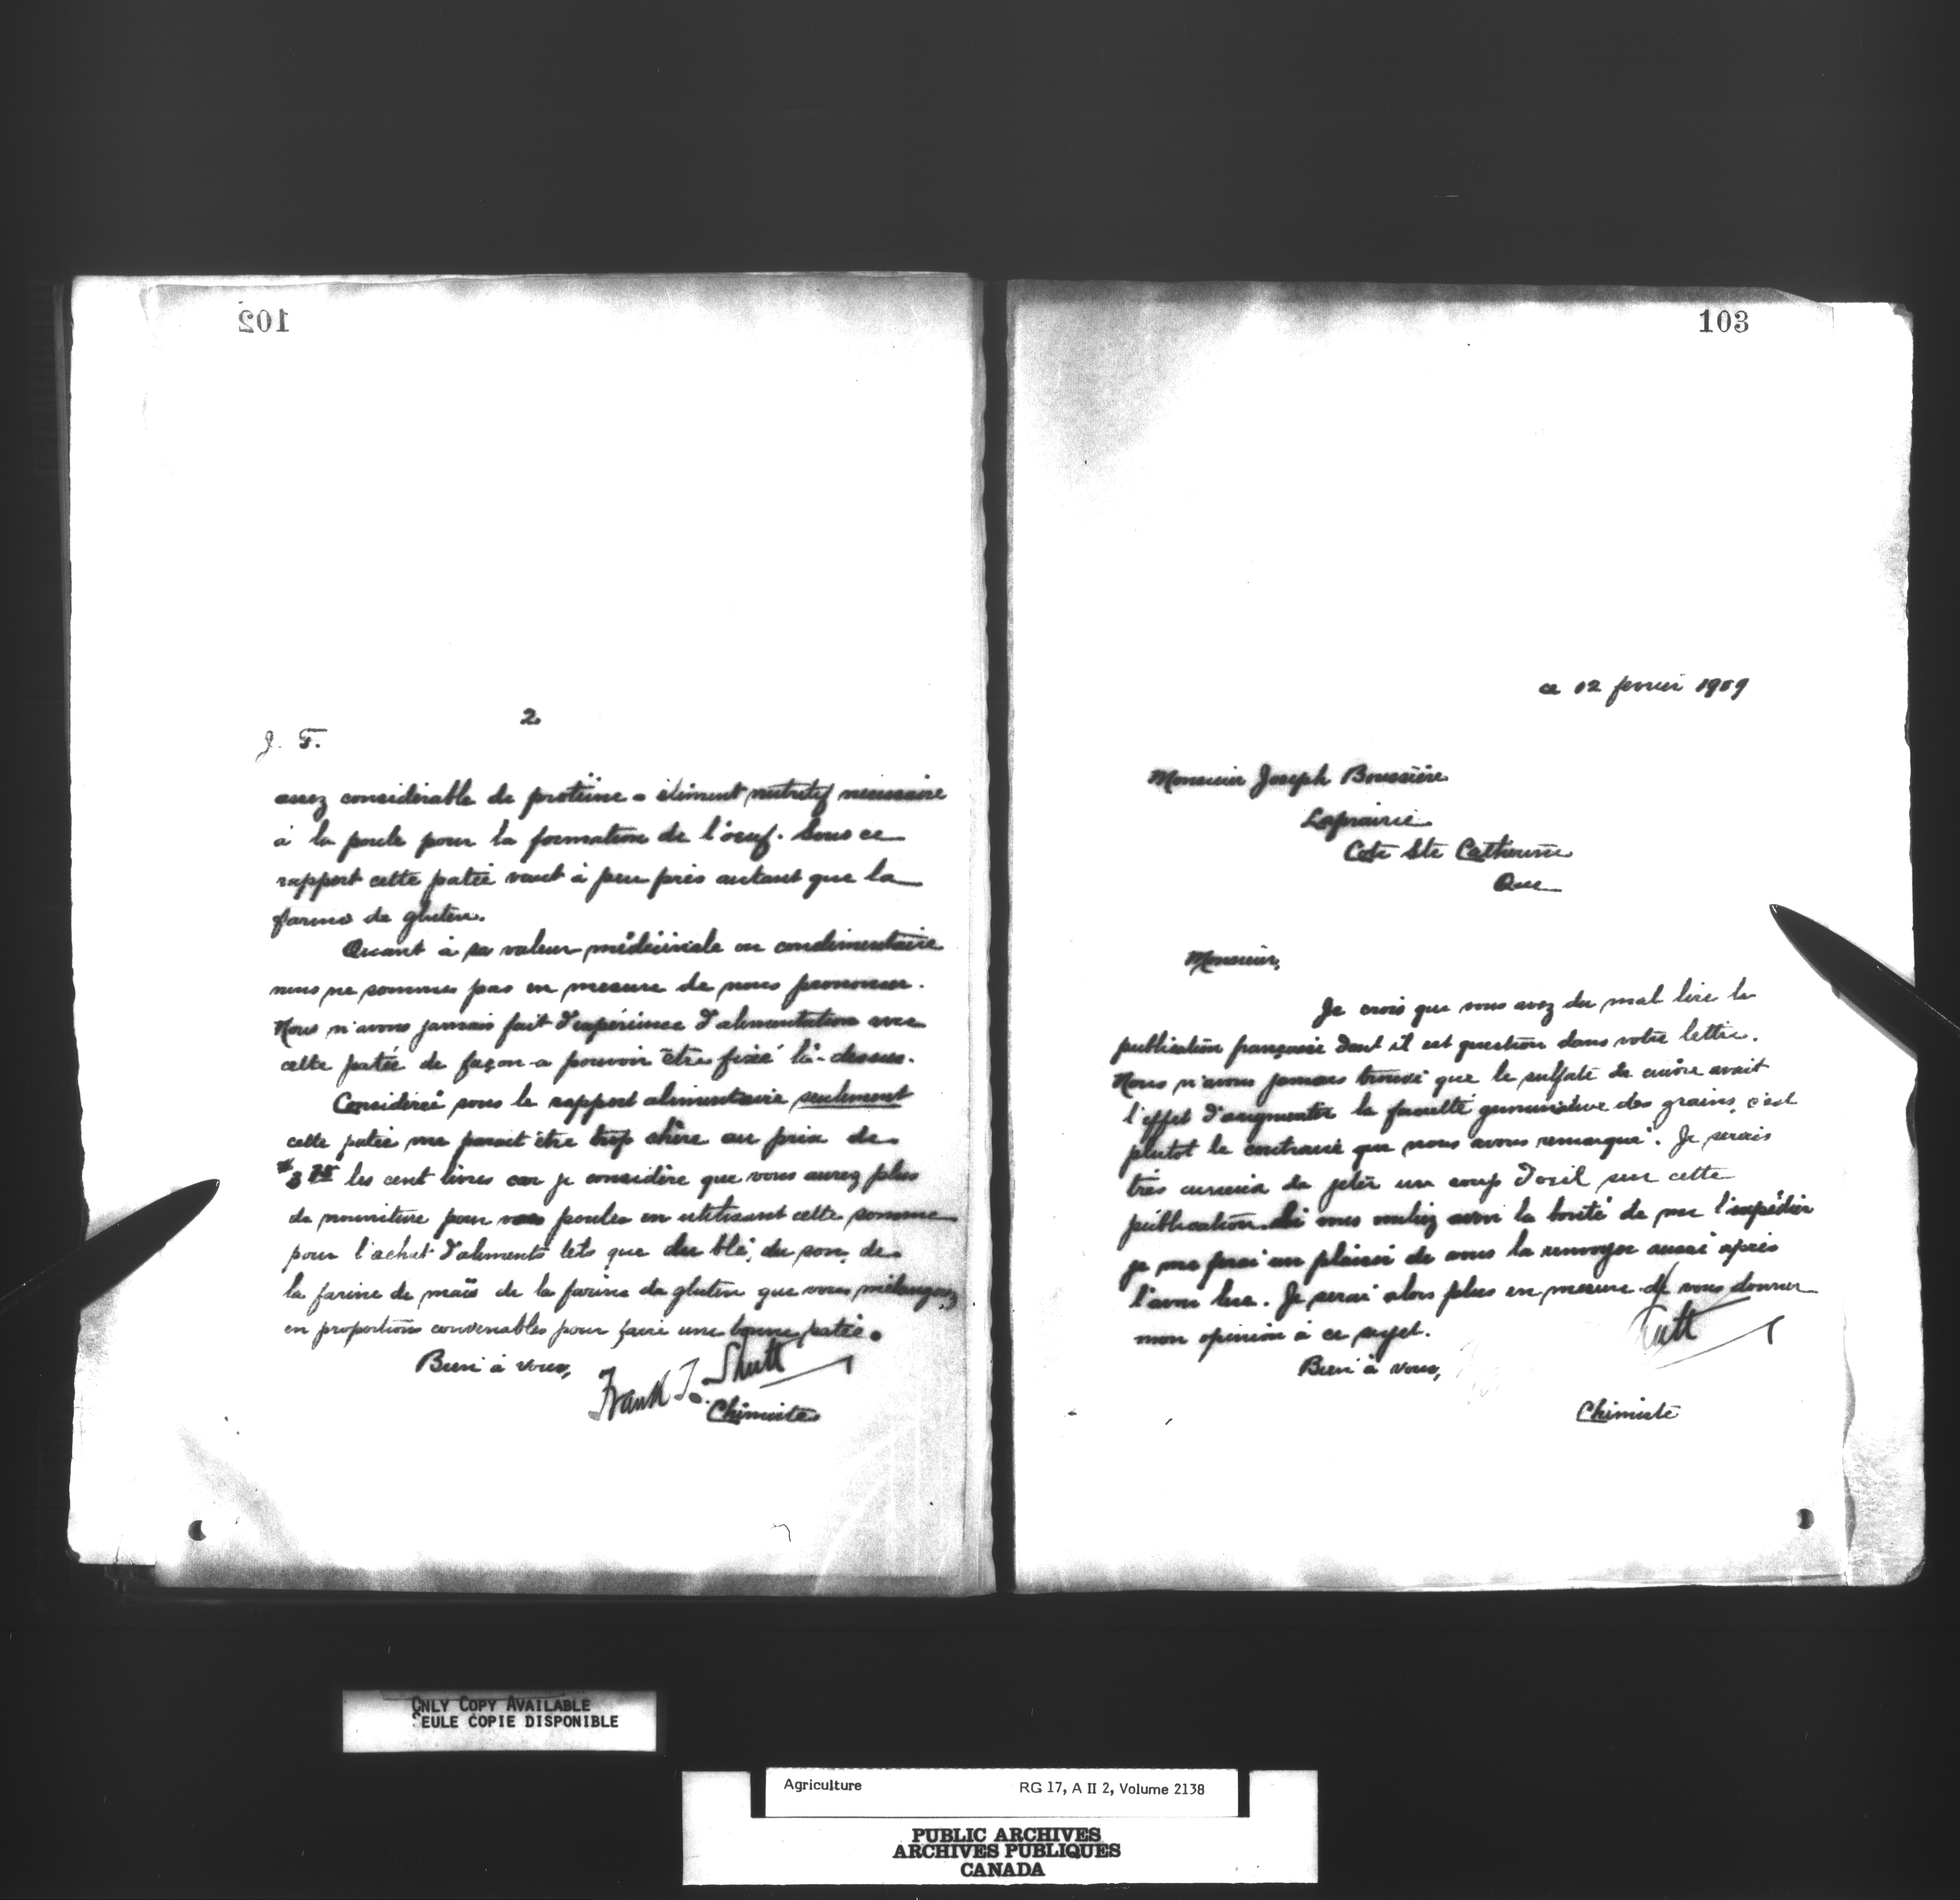 102
2.
J. F.
assez considérable de protéine - élément nutritif nécessaire
à la poule pour la formation de l'oeuf. Sous ce
rapport cette patée vaut à peu près autant que la
farine de gluten.
Quant à sa valeur médicinale ou condimentaire
nous ne sommes pas en mesure de nous prononcer.
Nous n'avons jamais fait d'expérience d'alimentation avec
cette patée de façon a pouvoir être fixé là-dessus.
Considérée sous le rapport alimentaire seulement
cette patée me parait être trop chère au prix de
les cent livres car je considère que vous aurez plus
de nourriture pour vos poules en utilisant cette somme
pour l'achat d'aliments tels que du blé, du son, de
la farine de maïs de la farine de gluten que vous mélangerez
en proportions convenables pour faire une bonne patée.
Bien à vous,
Frank T. Shutt
Chimiste
103
ce 12 fevrier 1909
Monsieur Joseph Boussière
Laprairie
Cote Ste Catherine
Que
Monsieur,
Je crois que vous avez du mal lire la
publication française dont il est question dans votre lettre.
Nous n'avons jamais trouvé que le sulfate de cuivre avait
l'effet d'augmenter la faculté germinative des grains, c'est
plutot le contraire que nous avons remarqué. Je serais
très curieux de jeter un coup d'oeil sur cette
publication. Si vous vouliez avoir la bonté de me l'expédier
je me ferai un plaisir de vous la renvoyer aussi après
l'avoir lue. Je serai alors plus en mesure de vous donner
mon opinion à ce sujet.
Bien à vous,
Shutt
Chimiste
ONLY COPY AVAILABLE
SEULE COPIE DISPONIBLE
Agriculture RG 17, A II 2, Volume 2138
PUBLIC ARCHIVES
ARCHIVES PUBLIQUES
CANADA